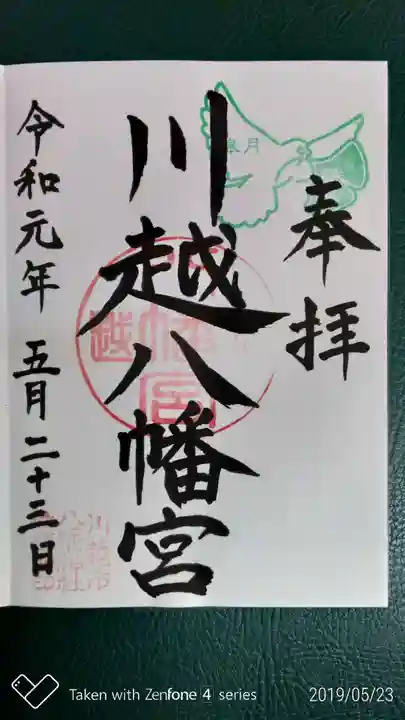 奉拝
皐月
川越八幡宮
令和元年 五月二十三日
Taken with Zenfone 4 series
2019/05/23